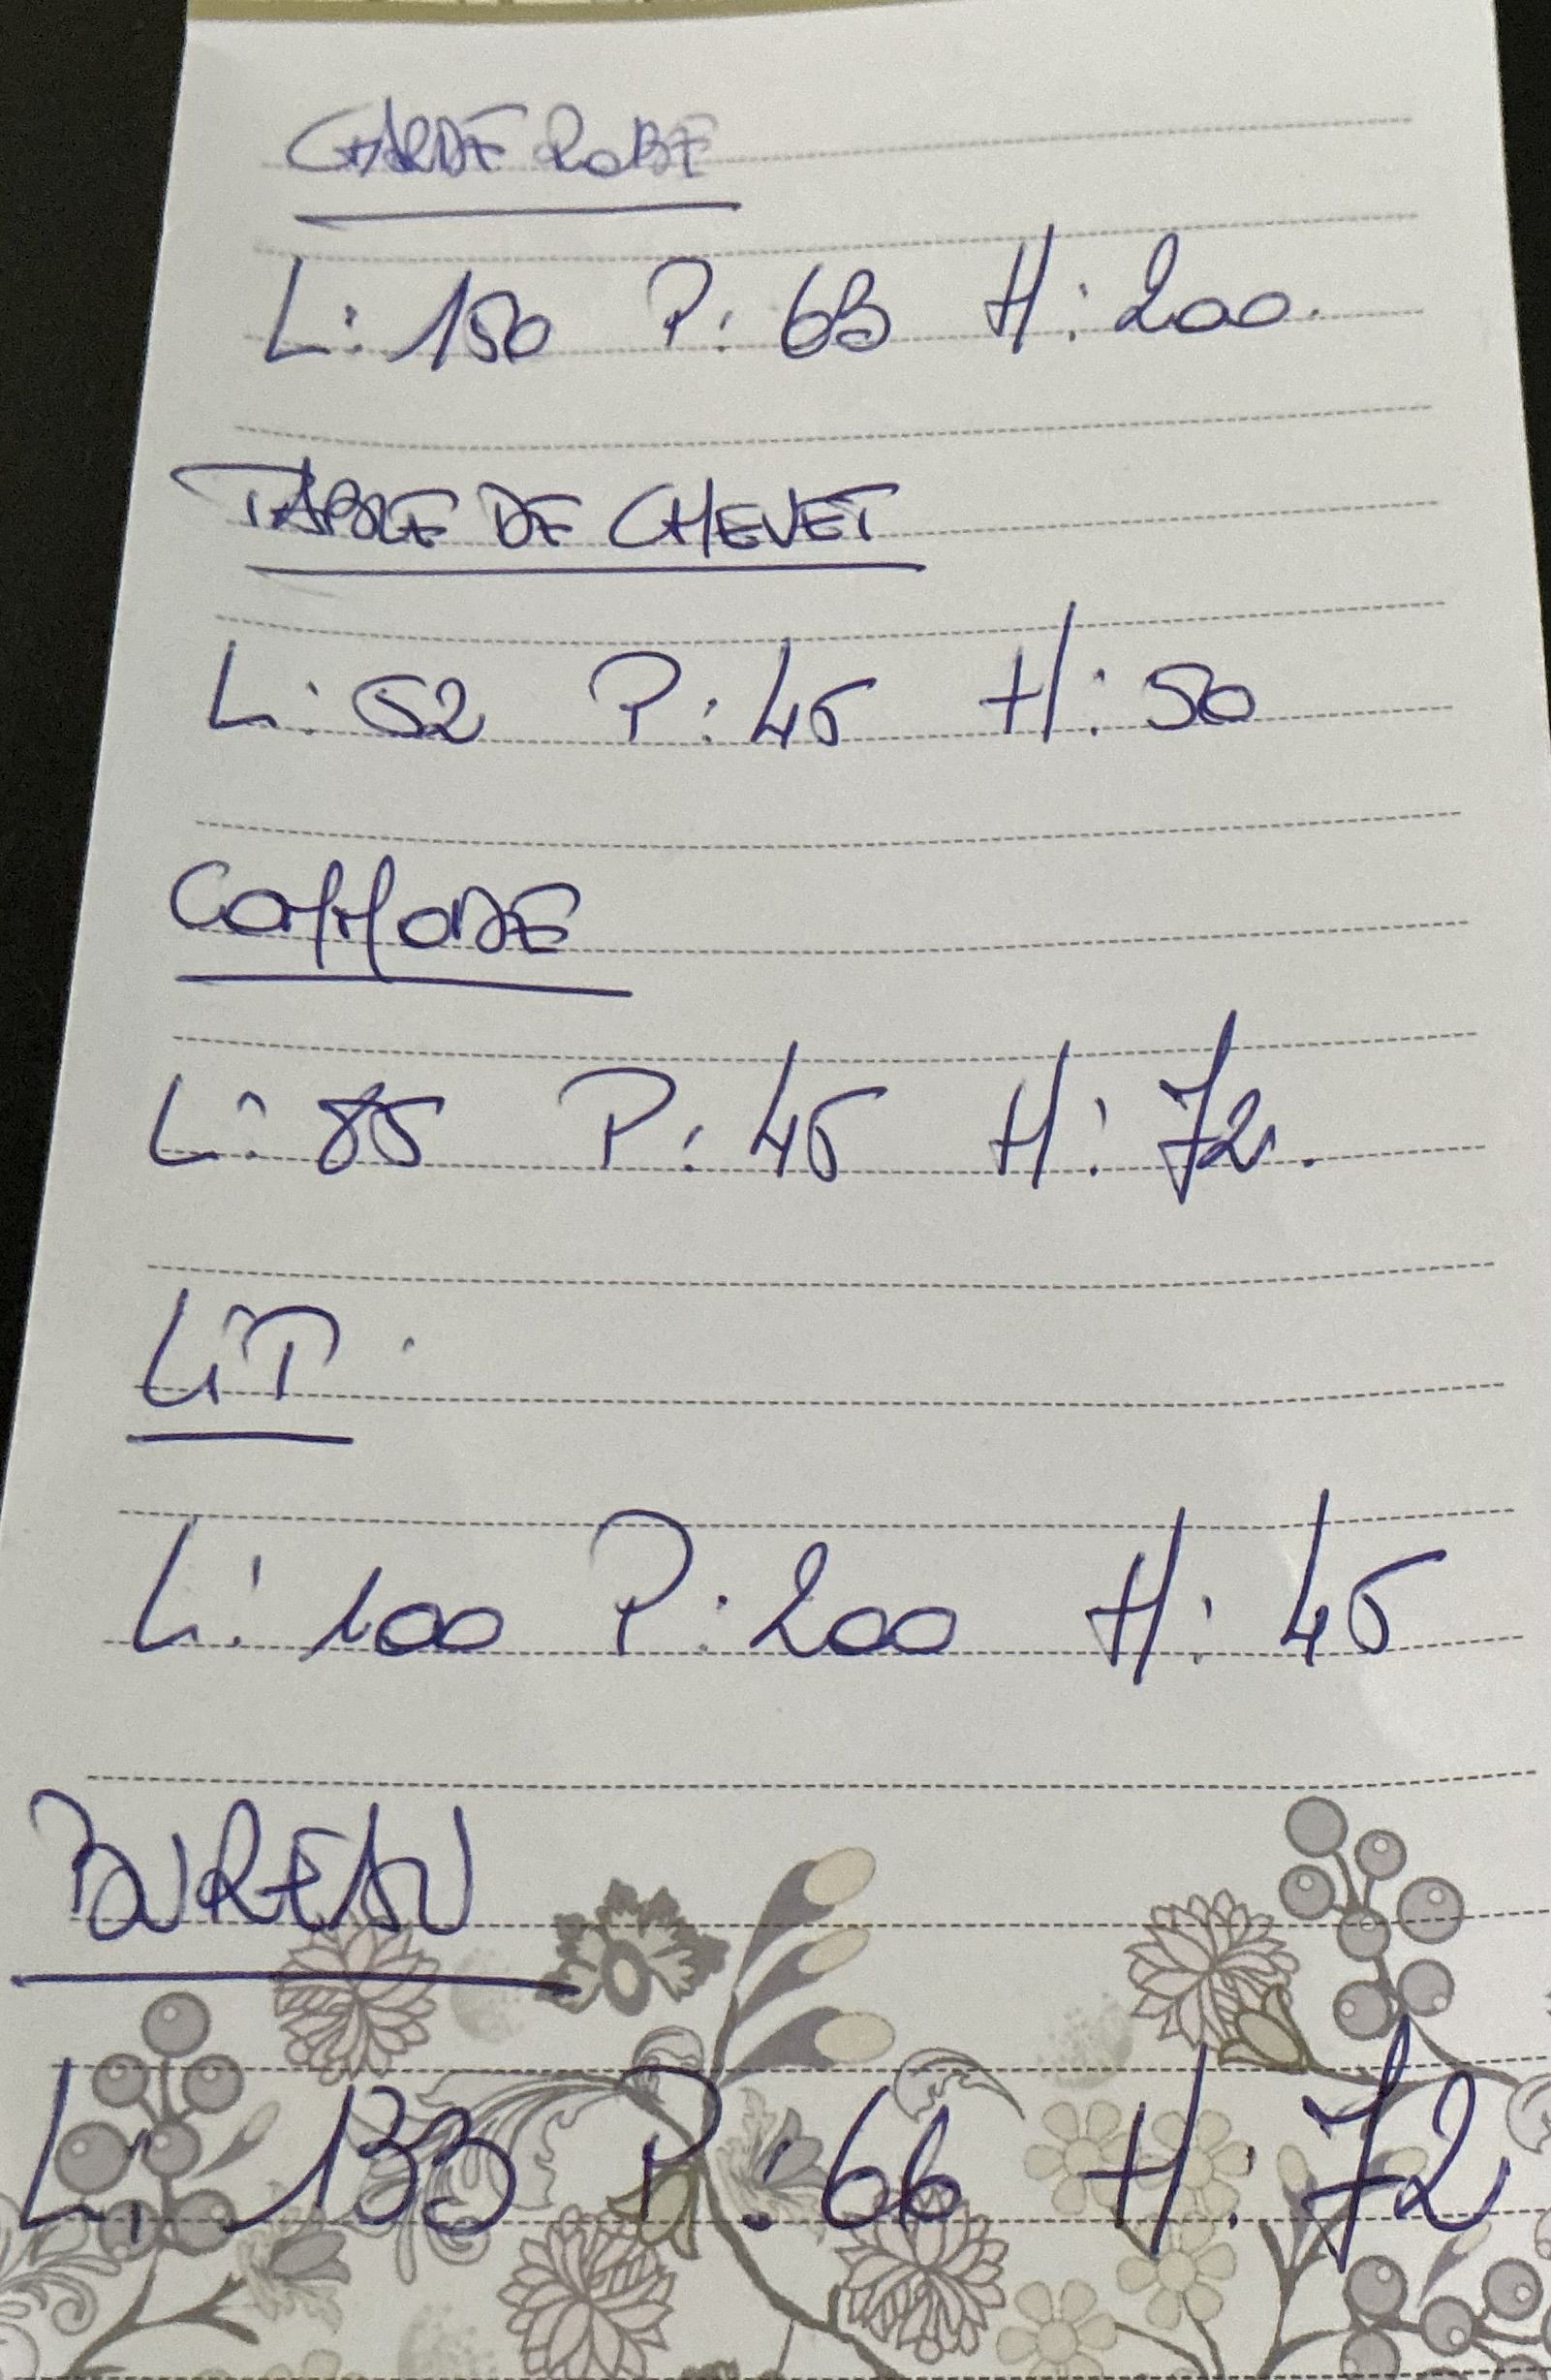 GARDE ROBE
L: 150 P: 63 H: 200.
TABLE DE CHEVET
L: 52 P: 45 H: 50
COMMODE
L: 85 P: 45 H: 72.
LIT
L: 100 P: 200 H: 45
BUREAU
L: 133 P: 66 H: 72